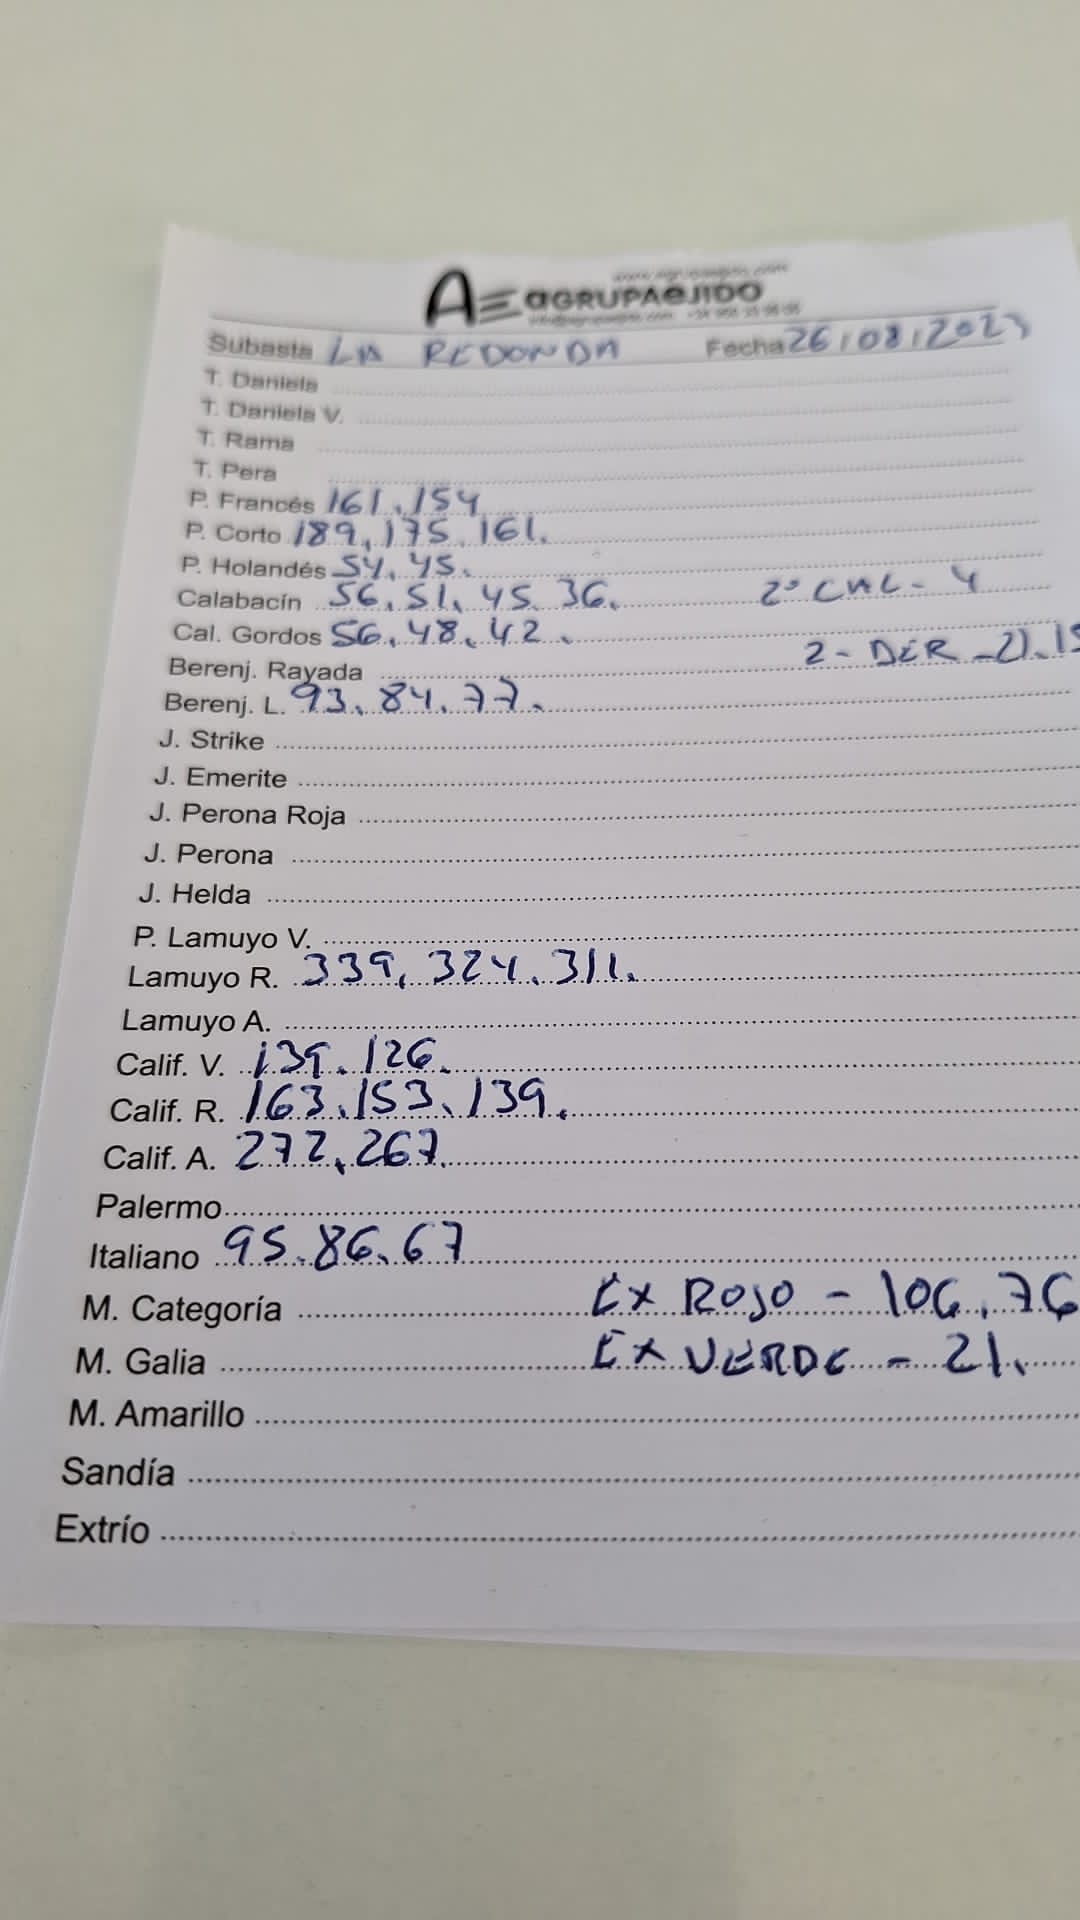 AE aGRUPAeJIDO
Subasta LA REDONDA Fecha 26/08/2023
T. Daniela
T. Daniela V.
T. Rama
T. Pera
P. Francés 161. 154
P. Corto 189. 175. 161.
P. Holandés 54. 45.
Calabacín 56. 51. 45. 36. 2º CAL - 4
Cal. Gordos 56. 48. 42.
Berenj. Rayada 2 - BER - 21. 15
Berenj. L. 93. 84. 77.
J. Strike
J. Emerite
J. Perona Roja
J. Perona
J. Helda
P. Lamuyo V.
Lamuyo R. 339. 324. 311.
Lamuyo A.
Calif. V. 139. 126.
Calif. R. 163. 153. 139.
Calif. A. 272. 267.
Palermo
Italiano 95. 86. 67
M. Categoría EX ROJO - 106. 76
M. Galia EX VERDE - 21.
M. Amarillo
Sandía
Extrío